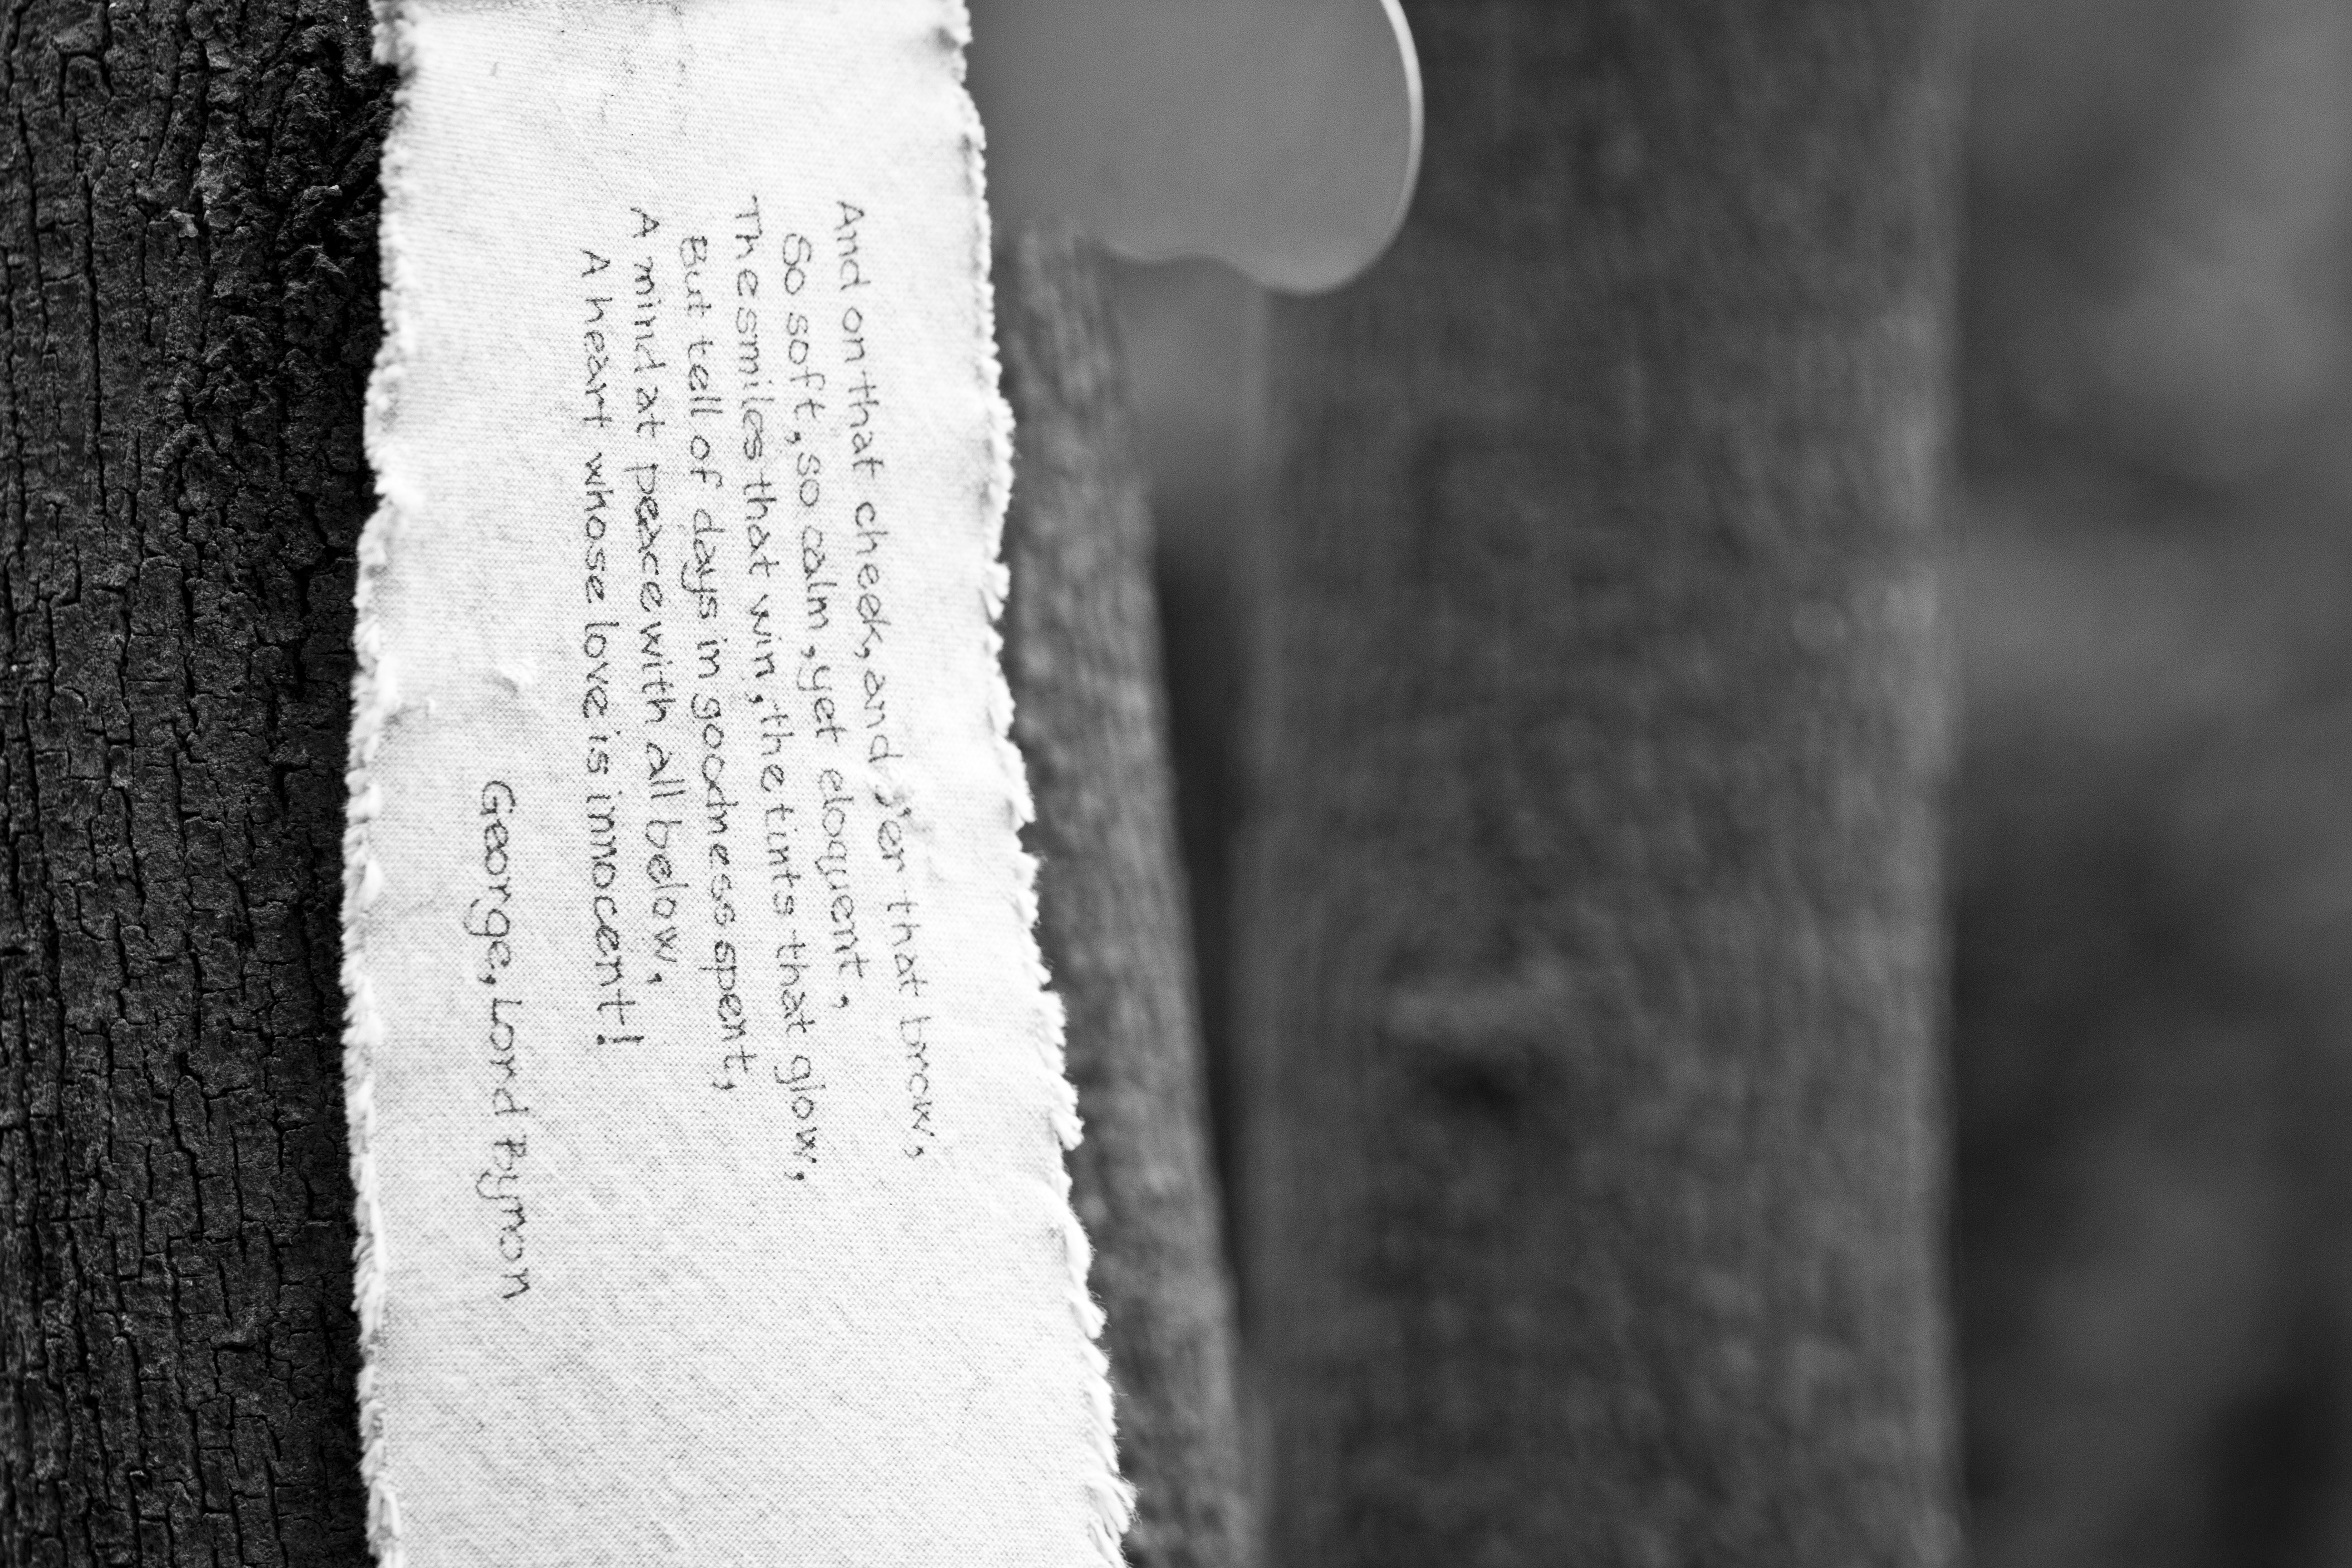 And on that cheek, and o'er that brow,
So soft, so calm, yet eloquent,
The smiles that win, the tints that glow,
But tell of days in goodness spent,
A mind at peace with all below,
A heart whose love is innocent!
George, Lord Byron